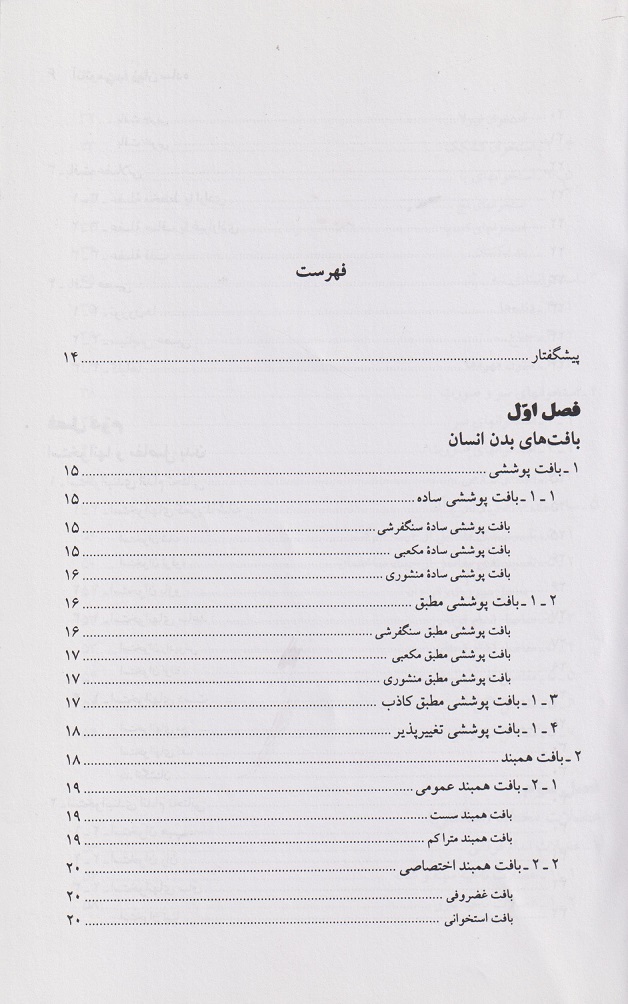 فهرست
پیشگفتار ........ ۱۴
فصل اوّل
بافت‌های بدن انسان
۱ ـ بافت پوششی ........ ۱۵
۱ ـ ۱ ـ بافت پوششی ساده ........ ۱۵
بافت پوششی سادهٔ سنگفرشی ........ ۱۵
بافت پوششی سادهٔ مکعبی ........ ۱۵
بافت پوششی سادهٔ منشوری ........ ۱۶
۲ ـ ۱ ـ بافت پوششی مطبق ........ ۱۶
بافت پوششی مطبق سنگفرشی ........ ۱۶
بافت پوششی مطبق مکعبی ........ ۱۷
بافت پوششی مطبق منشوری ........ ۱۷
۳ ـ ۱ ـ بافت پوششی مطبق کاذب ........ ۱۷
۴ ـ ۱ ـ بافت پوششی تغییرپذیر ........ ۱۸
۲ ـ بافت همبند ........ ۱۸
۱ ـ ۲ ـ بافت همبند عمومی ........ ۱۹
بافت همبند سست ........ ۱۹
بافت همبند متراکم ........ ۱۹
۲ ـ ۲ ـ بافت همبند اختصاصی ........ ۲۰
بافت غضروفی ........ ۲۰
بافت استخوانی ........ ۲۰